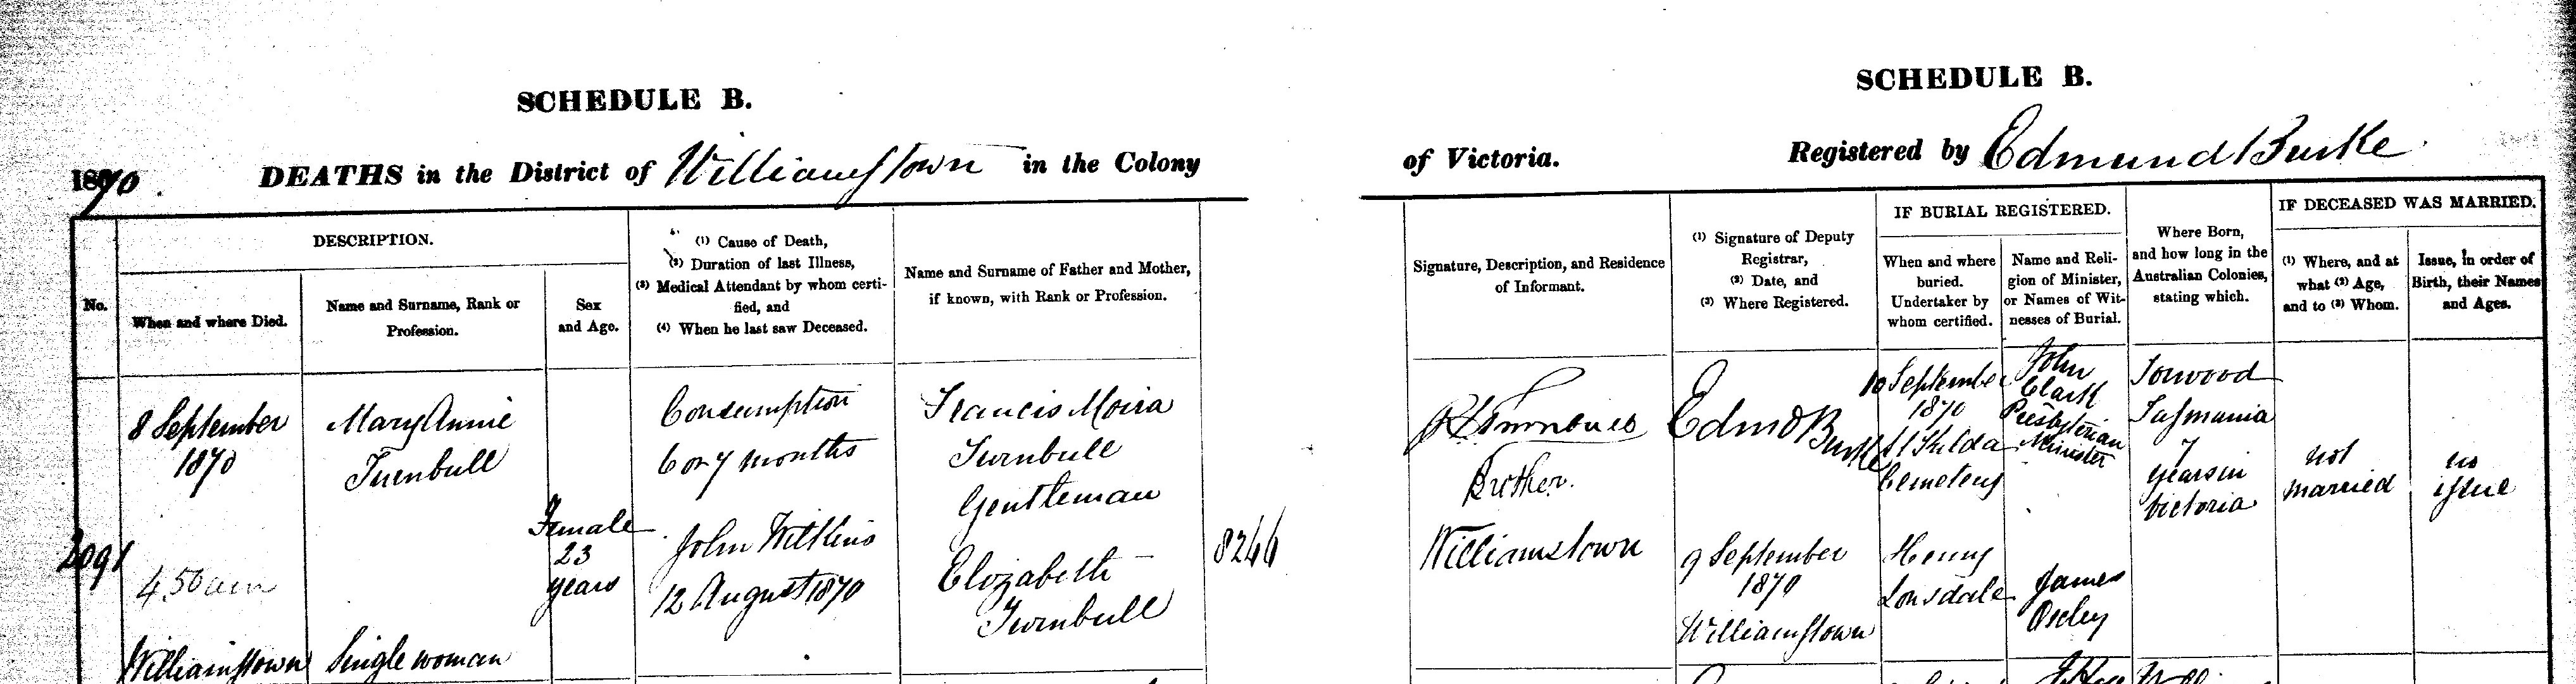 SCHEDULE B.
1870. DEATHS in the District of Williamstown in the Colony
No.
DESCRIPTION.
When and where Died.
Name and Surname, Rank or
Profession.
Sex
and Age.
(1) Cause of Death,
(2) Duration of last Illness,
(3) Medical Attendant by whom certi-
fied, and
(4) When he last saw Deceased.
Name and Surname of Father and Mother,
if known, with Rank or Profession.
2091
8 September
1870
4 50 am
Williamstown
Mary Annie
Turnbull
Single woman
Female
23
years
Consumption
6 or 7 months
John Wilkins
12 August 1870
Francis Moira
Turnbull
Gentleman
Elizabeth
Turnbull
8266
SCHEDULE B.
of Victoria. Registered by Edmund Burke
Signature, Description, and Residence
of Informant.
(1) Signature of Deputy
Registrar,
(2) Date, and
(3) Where Registered.
IF BURIAL REGISTERED.
When and where
buried.
Undertaker by
whom certified.
Name and Reli-
gion of Minister,
or Names of Wit-
nesses of Burial.
Where Born,
and how long in the
Australian Colonies,
stating which.
IF DECEASED WAS MARRIED.
(1) Where, and at
what (2) Age,
and to (3) Whom.
Issue, in order of
Birth, their Names
and Ages.
Brother.
Williamstown
Edmd Burke
9 September
1870
Williamstown
10 September
1870
St Kilda
Cemetery
Henry
Lonsdale
John
Clark
Presbyterian
Minister
James
Oxley
Torwood
Tasmania
7
years in
Victoria
not
married
no
issue